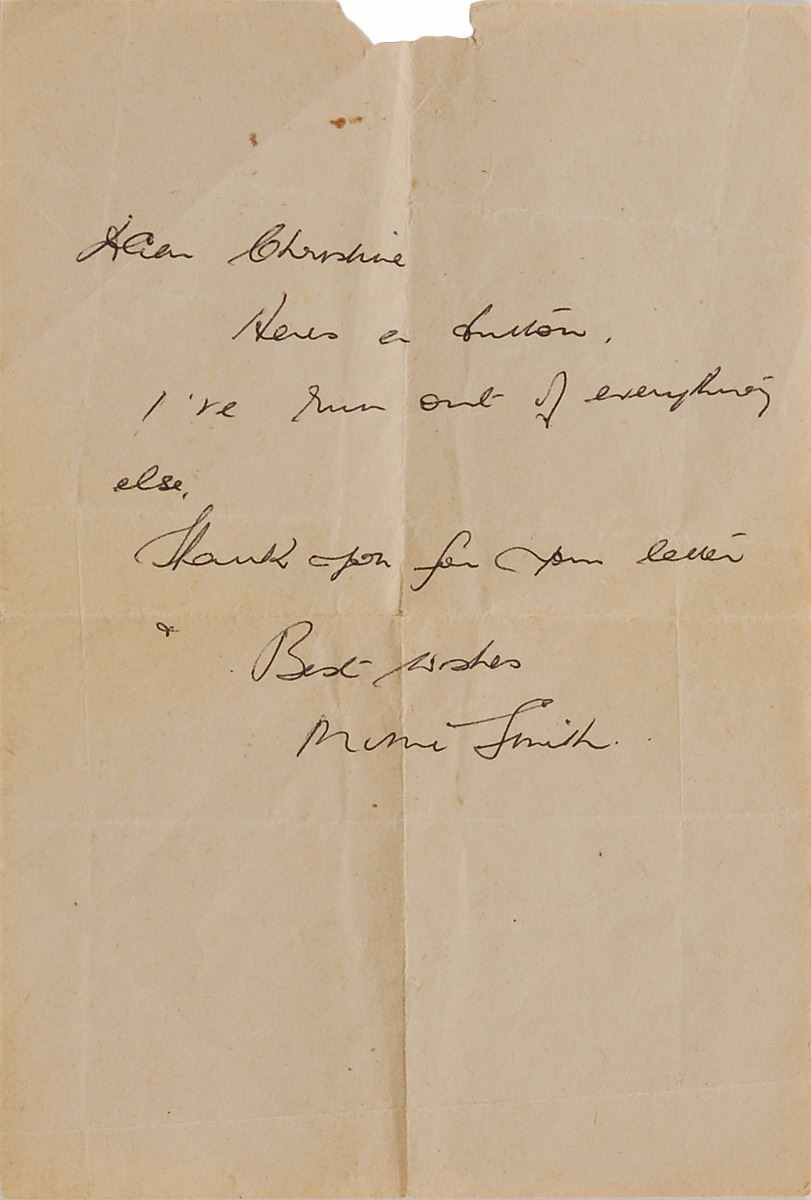 Dear Christine
Heres a button.
I've run out of everything
else.
Thank you for your letter
&
Best wishes
Mimi Smith.